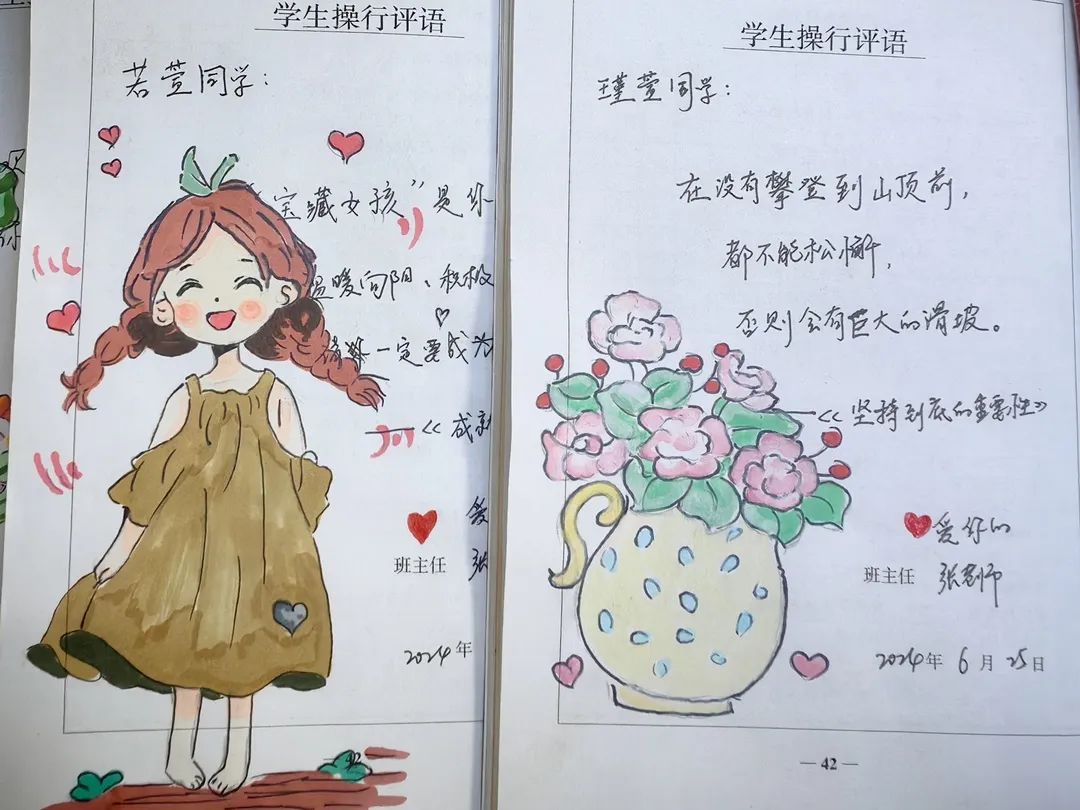 学生操行评语
若萱同学：
宝藏女孩”是你
温暖向阳、积极
一定要成为
《成
班主任
2024年
学生操行评语
瑾萱同学：
在没有攀登到山顶前，
都不能松懈，
否则会有巨大的滑坡。
——《坚持到底的重要性》
爱你的
班主任 张老师
2024年6月25日
— 42 —